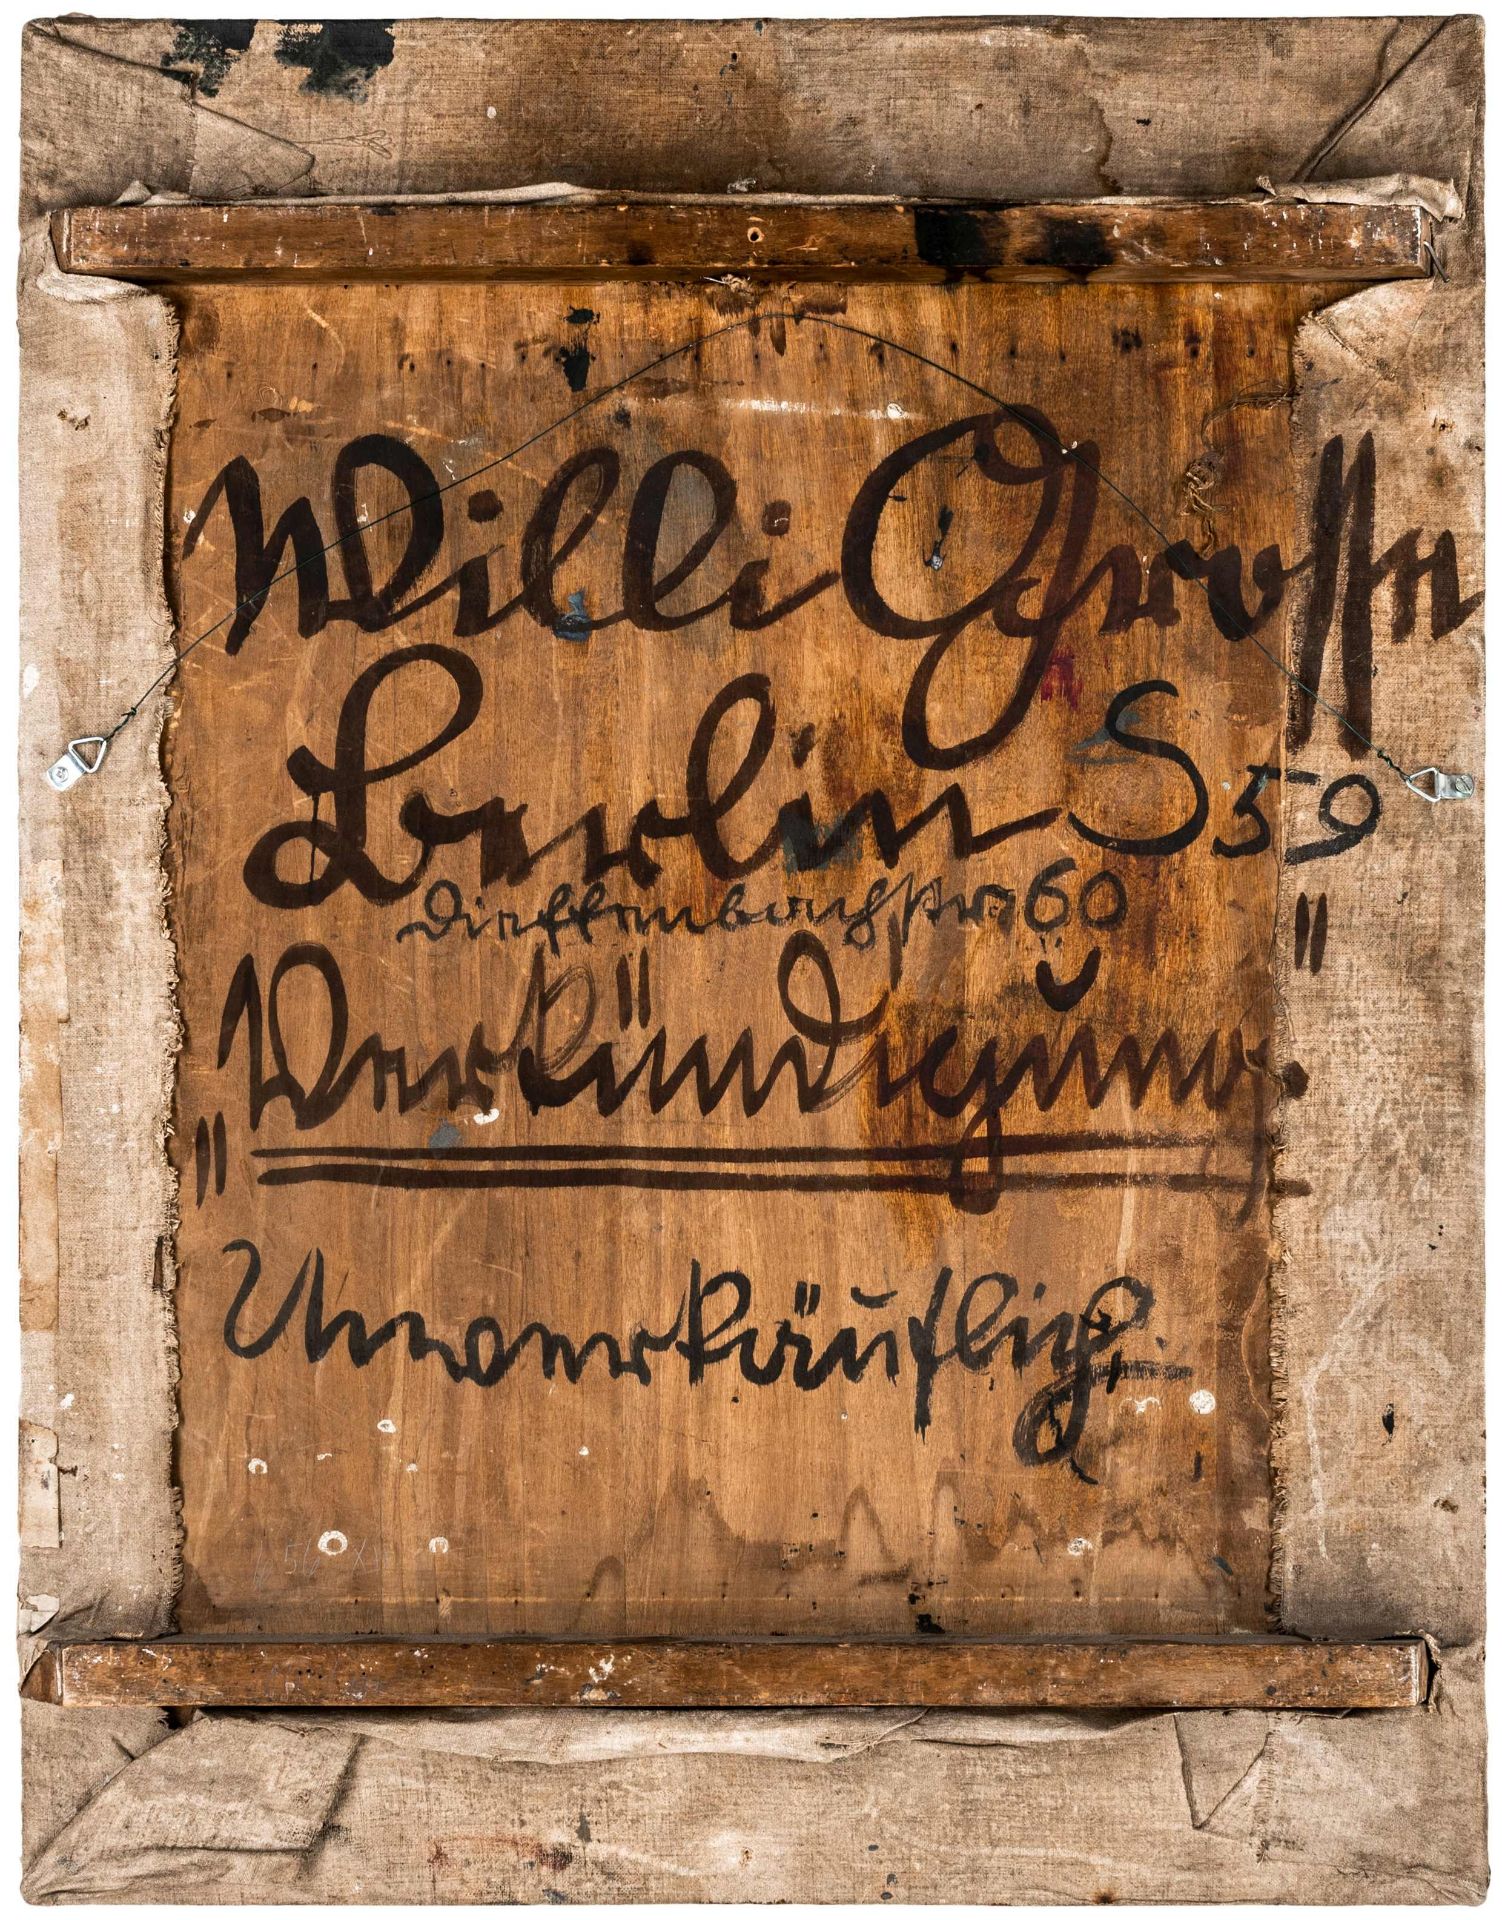 Willi
Berlin S 59
Dieffenbachstr. 60
„Verkündigung."
Unverkäuflich!